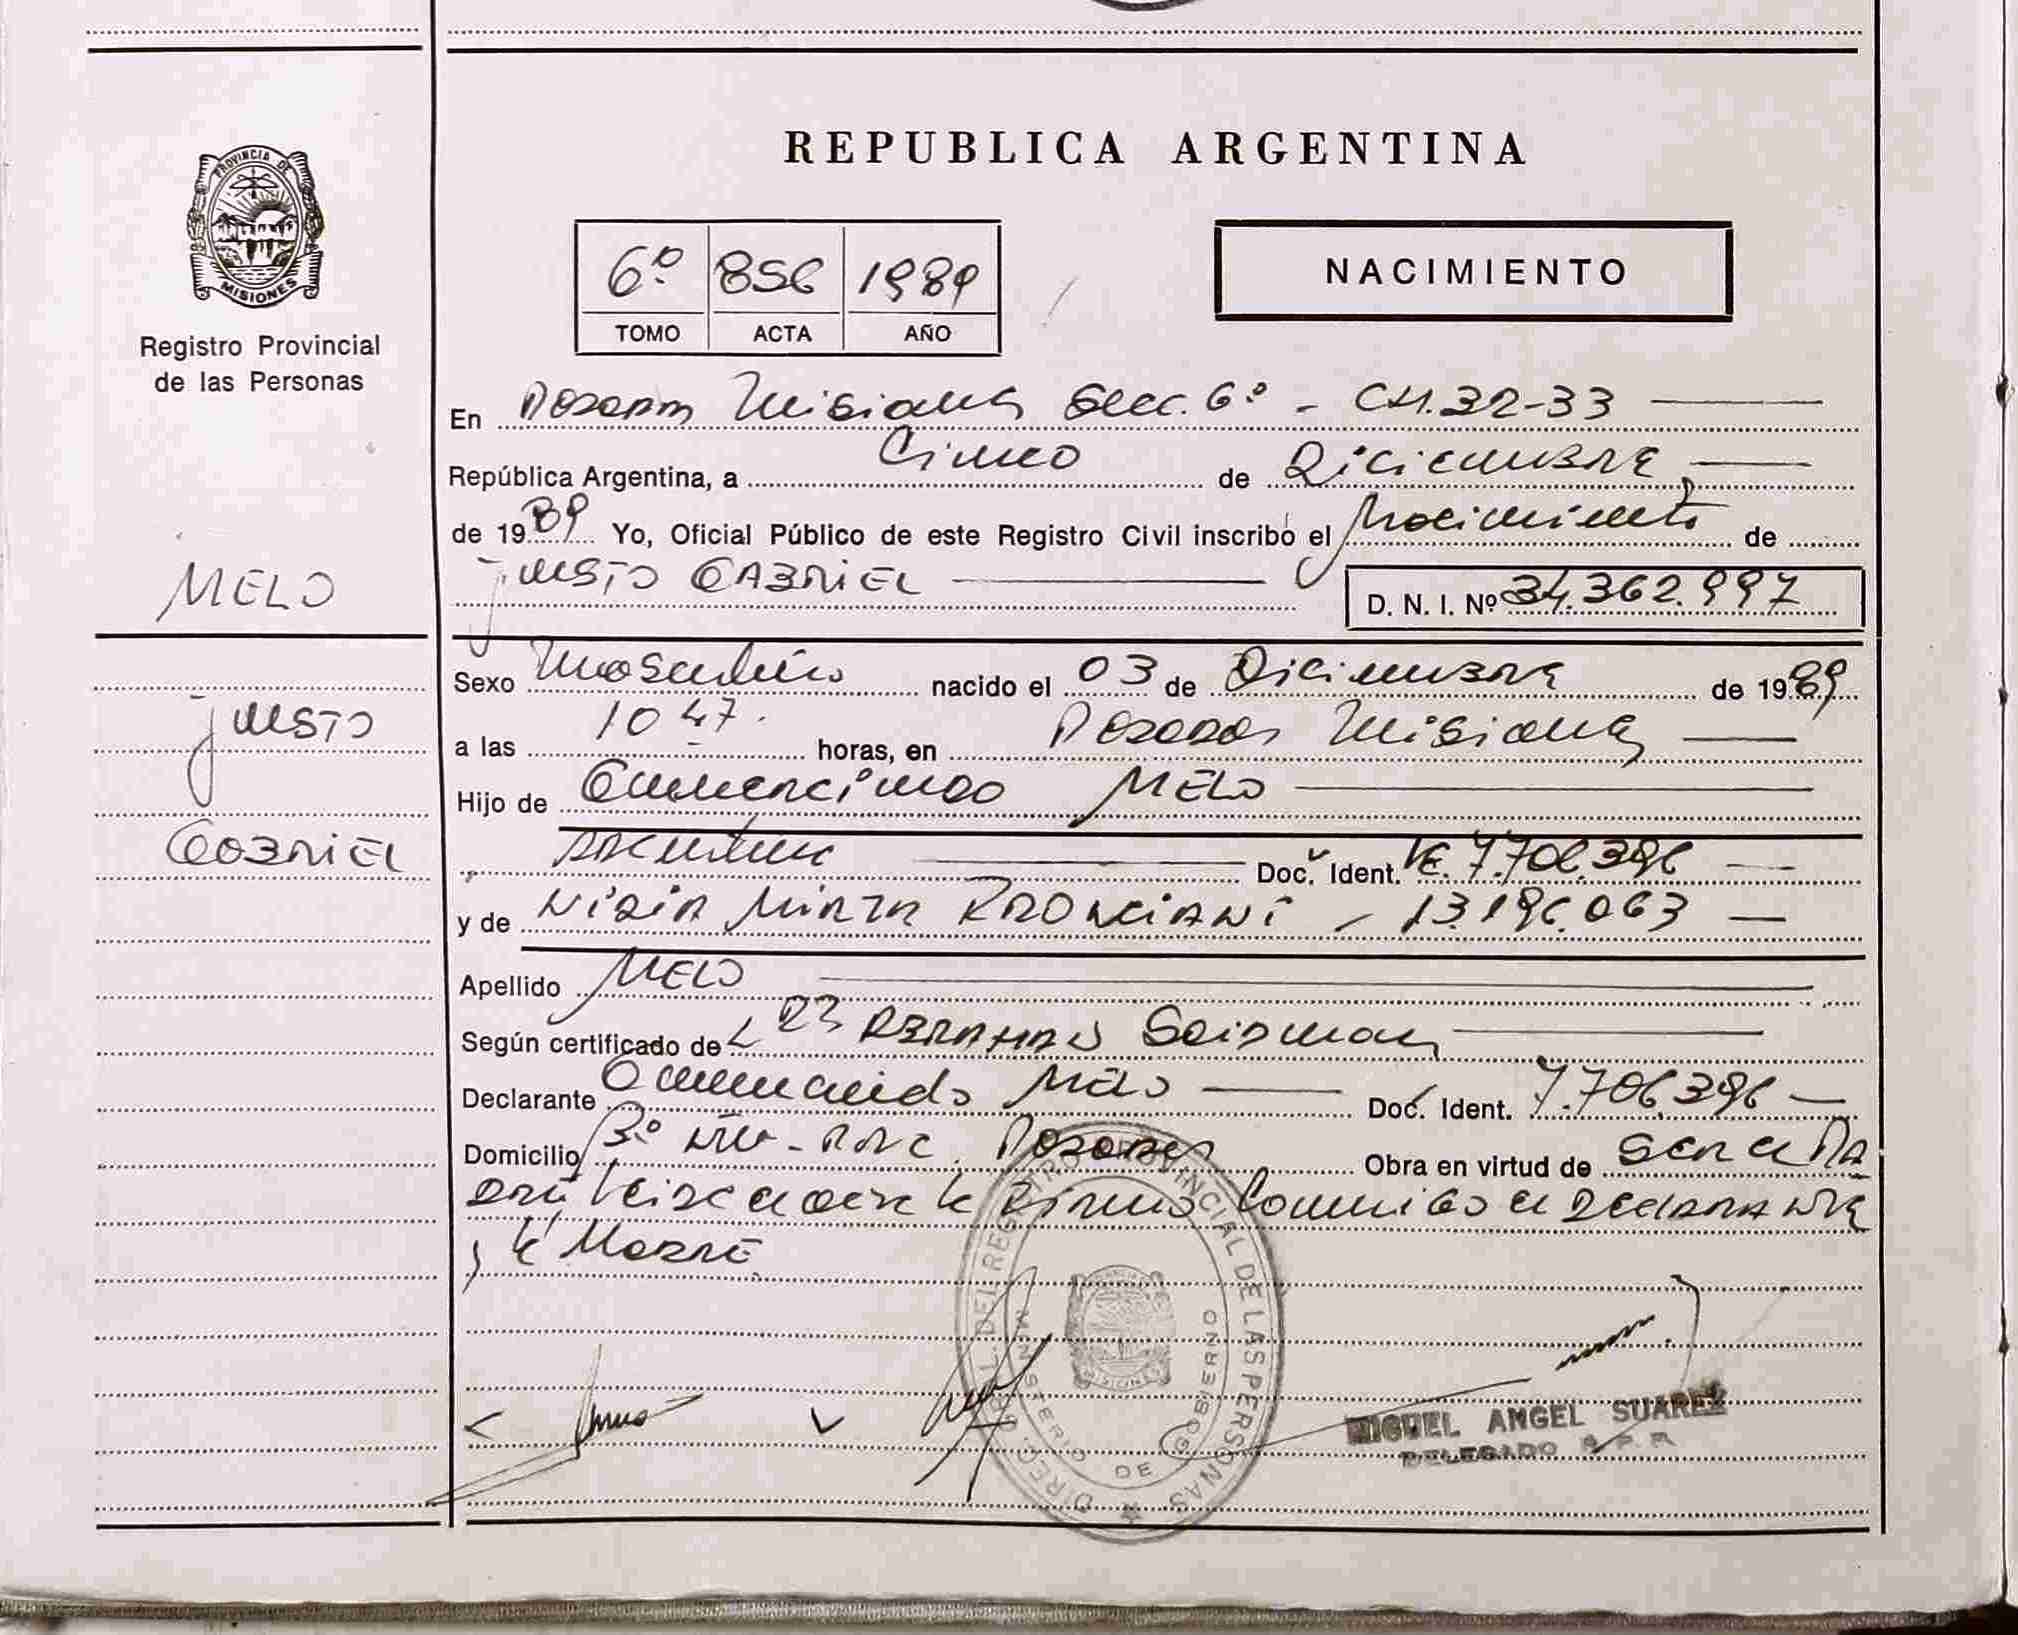 PROVINCIA DE
MISIONES
Registro Provincial
de las Personas
MELO
JUSTO
GABRIEL
REPUBLICA ARGENTINA
6º 856 1989
TOMO ACTA AÑO
NACIMIENTO
En Posadas Misiones Secc. 6º - CH. 32-33
República Argentina, a Cinco de Diciembre
de 1989 Yo, Oficial Público de este Registro Civil inscribo el Nacimiento de
JUSTO GABRIEL
D. N. I. Nº 34.362.997
Sexo Masculino nacido el 03 de Diciembre de 1989
a las 10 47. horas, en Posadas Misiones
Hijo de MELO
Argentino Doc. Ident. 7.706.396
y de MIRTA 13.196.063
Apellido MELO
Según certificado de ABRAHAN
Declarante MELO Doc. Ident. 7.706.396
Domicilio Posadas Obra en virtud de
Firma Conmigo el Declarante
y la Madre
DIREC. GRAL. DEL REGISTRO PROVINCIAL DE LAS PERSONAS
MINISTERIO DE GOBIERNO
MISIONES
MIGUEL ANGEL SUAREZ
DELEGADO R.P.P.